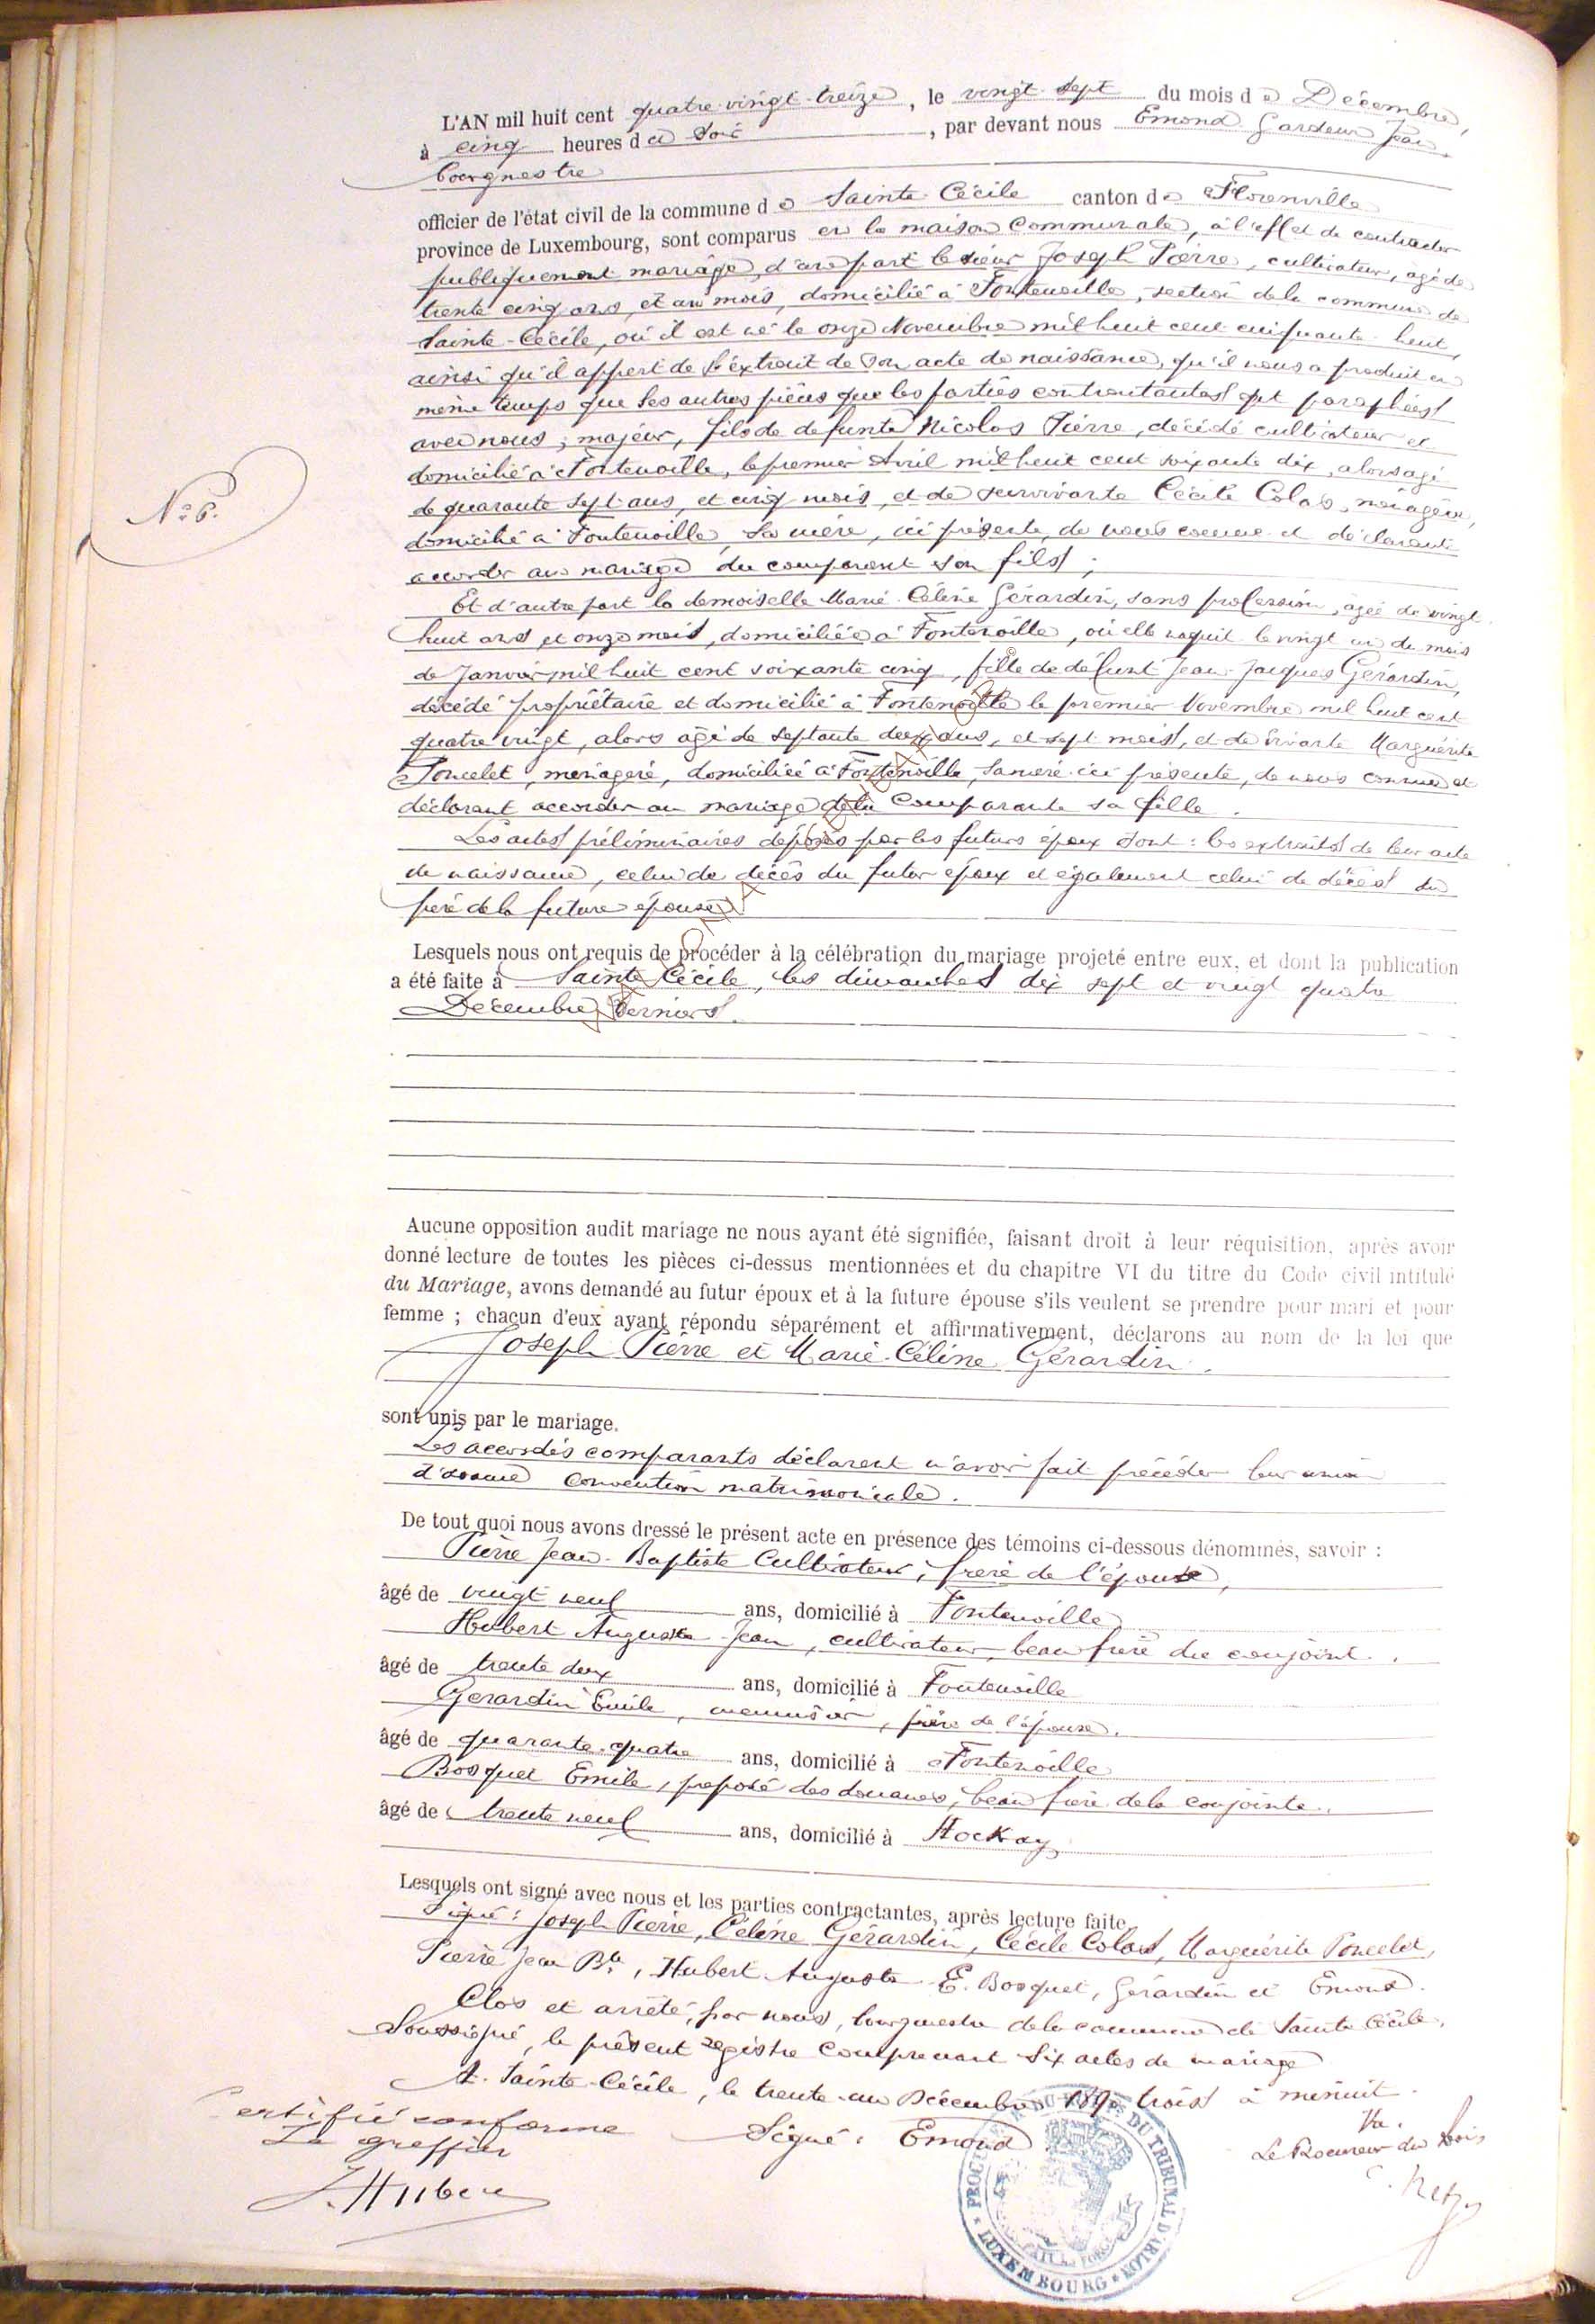 L'AN mil huit cent quatre-vingt-treize, le vingt-sept du mois de Décembre,
à cinq heures du soir, par devant nous Emond Gardeur Jean,
bourgmestre
officier de l'état civil de la commune de Sainte-Cécile canton de Florenville
province de Luxembourg, sont comparus en la maison communale, à l'effet de contracter
publiquement mariage, d'une part le sieur Joseph Pierre, cultivateur, âgé de
trente cinq ans, et un mois, domicilié à Fontenoille, section de la commune de
Sainte-Cécile, où il est né le onze Novembre mil huit cent cinquante-huit,
ainsi qu'il appert de l'extrait de son acte de naissance, qu'il nous a produit en
même temps que les autres pièces que les parties contractantes ont paraphées
avec nous; majeur, fils de defunt Nicolas Pierre, décédé cultivateur et
domicilié à Fontenoille, le premier Avril mil huit cent soixante dix, alors âgé
de quarante sept ans, et cinq mois, et de survivante Cécile Colas, ménagère,
domicilié à Fontenoille, sa mère, ici présente, de nous connue et déclarant
accorder au mariage du comparant son fils;
Et d'autre part la demoiselle Marie-Céline Gérardin, sans profession, âgée de vingt
huit ans et onze mois, domiciliée à Fontenoille, où elle naquit le vingt un du mois
de Janvier mil huit cent soixante cinq, fille de défunt Jean-Jacques Gérardin,
décédé propriétaire et domicilié à Fontenoille le premier Novembre mil huit cent
quatre vingt, alors âgé de septante deux ans, et sept mois, et de vivante Marguérite
Poncelet, ménagère, domiciliée à Fontenoille, sa mère ici présente, de nous connue et
déclarant accorder au mariage de la comparante sa fille.
Les actes préliminaires déposés par les futurs époux sont: les extraits de leur acte
de naissance, celui de décès du futur époux et également celui de décès du
père de la future épouse
Lesquels nous ont requis de procéder à la célébration du mariage projeté entre eux, et dont la publication
a été faite à Sainte Cécile, les dimanches dix sept et vingt quatre
Décembre derniers.
N° 6.
Aucune opposition audit mariage ne nous ayant été signifiée, faisant droit à leur réquisition, après avoir
donné lecture de toutes les pièces ci-dessus mentionnées et du chapitre VI du titre du Code civil intitulé
du Mariage, avons demandé au futur époux et à la future épouse s'ils veulent se prendre pour mari et pour
femme ; chacun d'eux ayant répondu séparément et affirmativement, déclarons au nom de la loi que
Joseph Pierre et Marie-Céline Gérardin.
sont unis par le mariage.
Les accordés comparants déclarent n'avoir fait précéder leur union
d'aucune convention matrimoniale.
De tout quoi nous avons dressé le présent acte en présence des témoins ci-dessous dénommés, savoir :
Pierre Jean-Baptiste Cultivateur, frère de l'époux,
âgé de vingt neuf ans, domicilié à Fontenoille
Hubert Auguste Jean, cultivateur, beau frère du conjoint.
âgé de trente deux ans, domicilié à Fontenoille
Gerardin Emile, menuisier, frère de l'épouse.
âgé de quarante-quatre ans, domicilié à Fontenoille
Bosquet Emile, préposé des douanes, beau frère de la conjointe.
âgé de trente neuf ans, domicilié à Hockay
Lesquels ont signé avec nous et les parties contractantes, après lecture faite
Signé: Joseph Pierre, Céline Gérardin, Cécile Colas, Marguérite Poncelet,
Pierre Jean Bte, Hubert Auguste E. Bosquet, Gérardin et Emond.
Clos et arrêté, par nous, bourgmestre de la commune de Sainte Cécile,
Soussigné, le présent registre comprenant six actes de mariage
A Sainte-Cécile, le trente-un Décembre 189 trois à minuit.
Signé: Emond
Certifié conforme
Le greffier
J. Hubert
Vu.
Le Procureur du Roi,
PROCUREUR DU ROI PRÈS DU TRIBUNAL D'ARLON
LUXEMBOURG